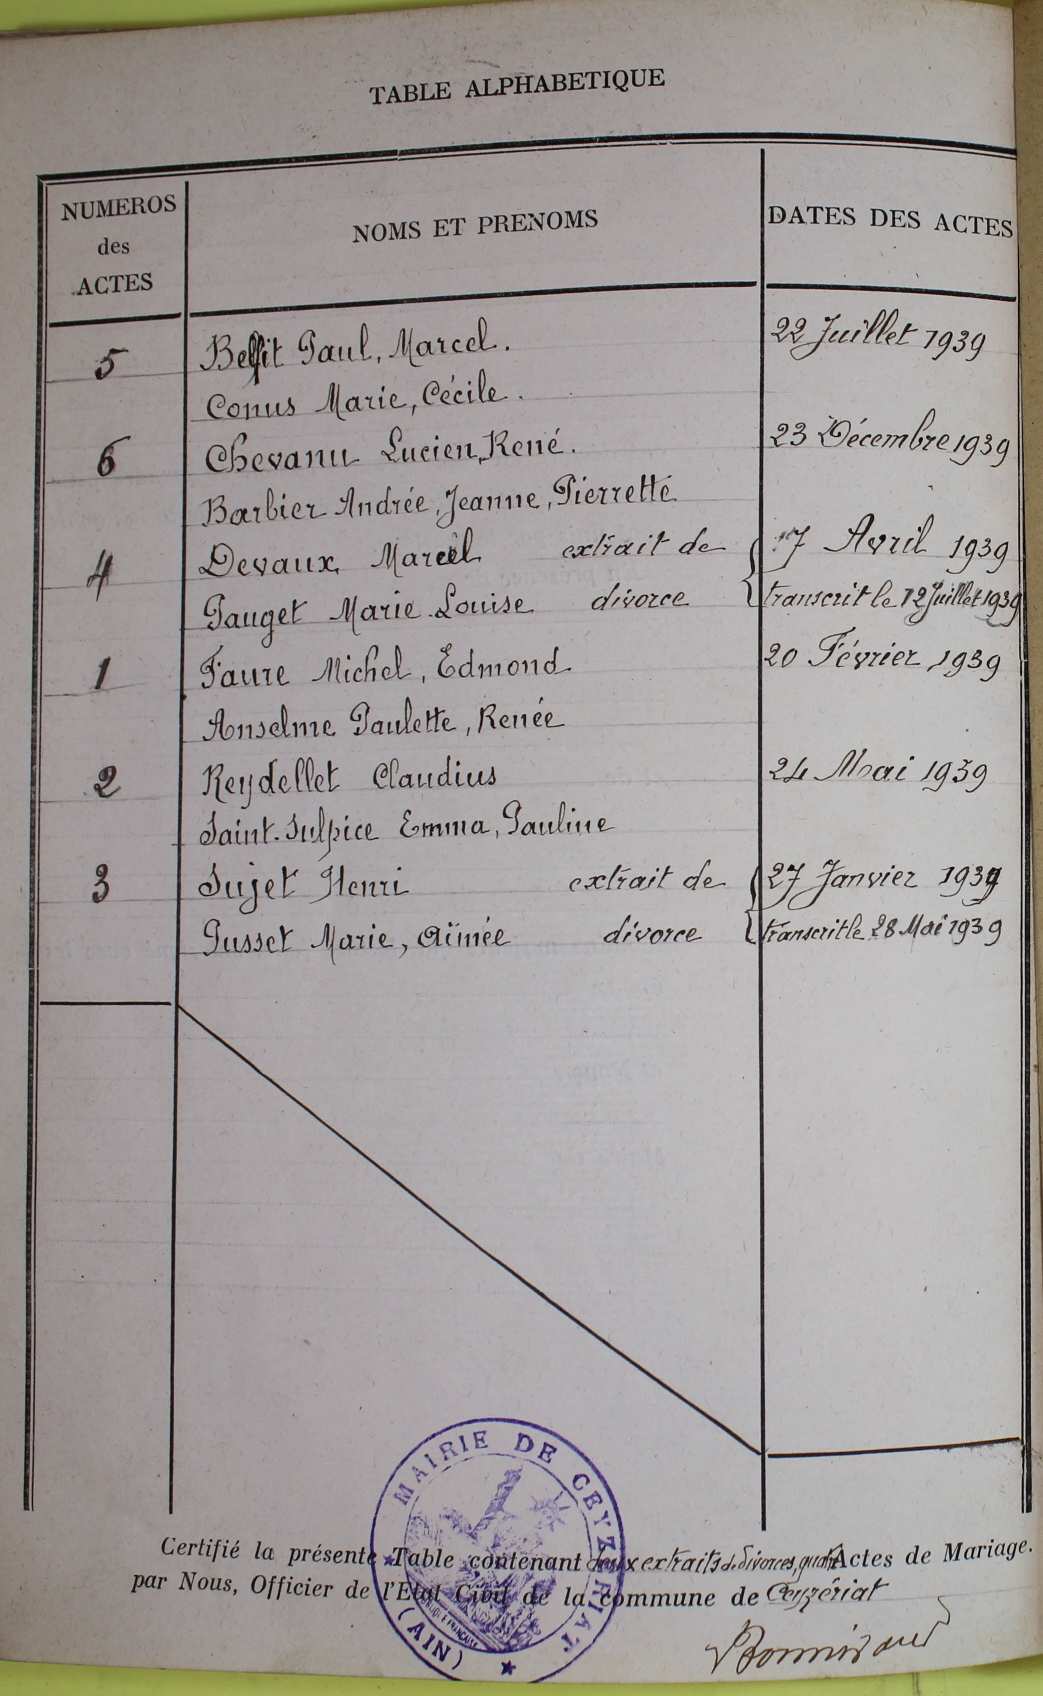 TABLE ALPHABETIQUE
NUMEROS
des
ACTES
NOMS ET PRENOMS
DATES DES ACTES
5 Paul, Marcel. 22 Juillet 1939
Conus Marie, Cécile.
6 Chevanu Lucien, René. 23 Décembre 1939
Barbier Andrée, Jeanne, Pierrette
4 Devaux Marcel extrait de 7 Avril 1939
Pauget Marie Louise divorce transcrit le 12 Juillet 1939
1 Faure Michel, Edmond 20 Février 1939
Anselme Paulette, Renée
2 Reydellet Claudius 24 Mai 1939
Saint-Sulpice Emma, Pauline
3 Sujet Henri extrait de 27 Janvier 1939
Gusset Marie, Aïmée divorce transcrit le 28 Mai 1939
MAIRIE DE CEYZERIAT
(AIN)
Certifié la présente Table contenant deux extraits de divorces, quatre Actes de Mariage.
par Nous, Officier de l'Etat Civil de la commune de Ceyzériat